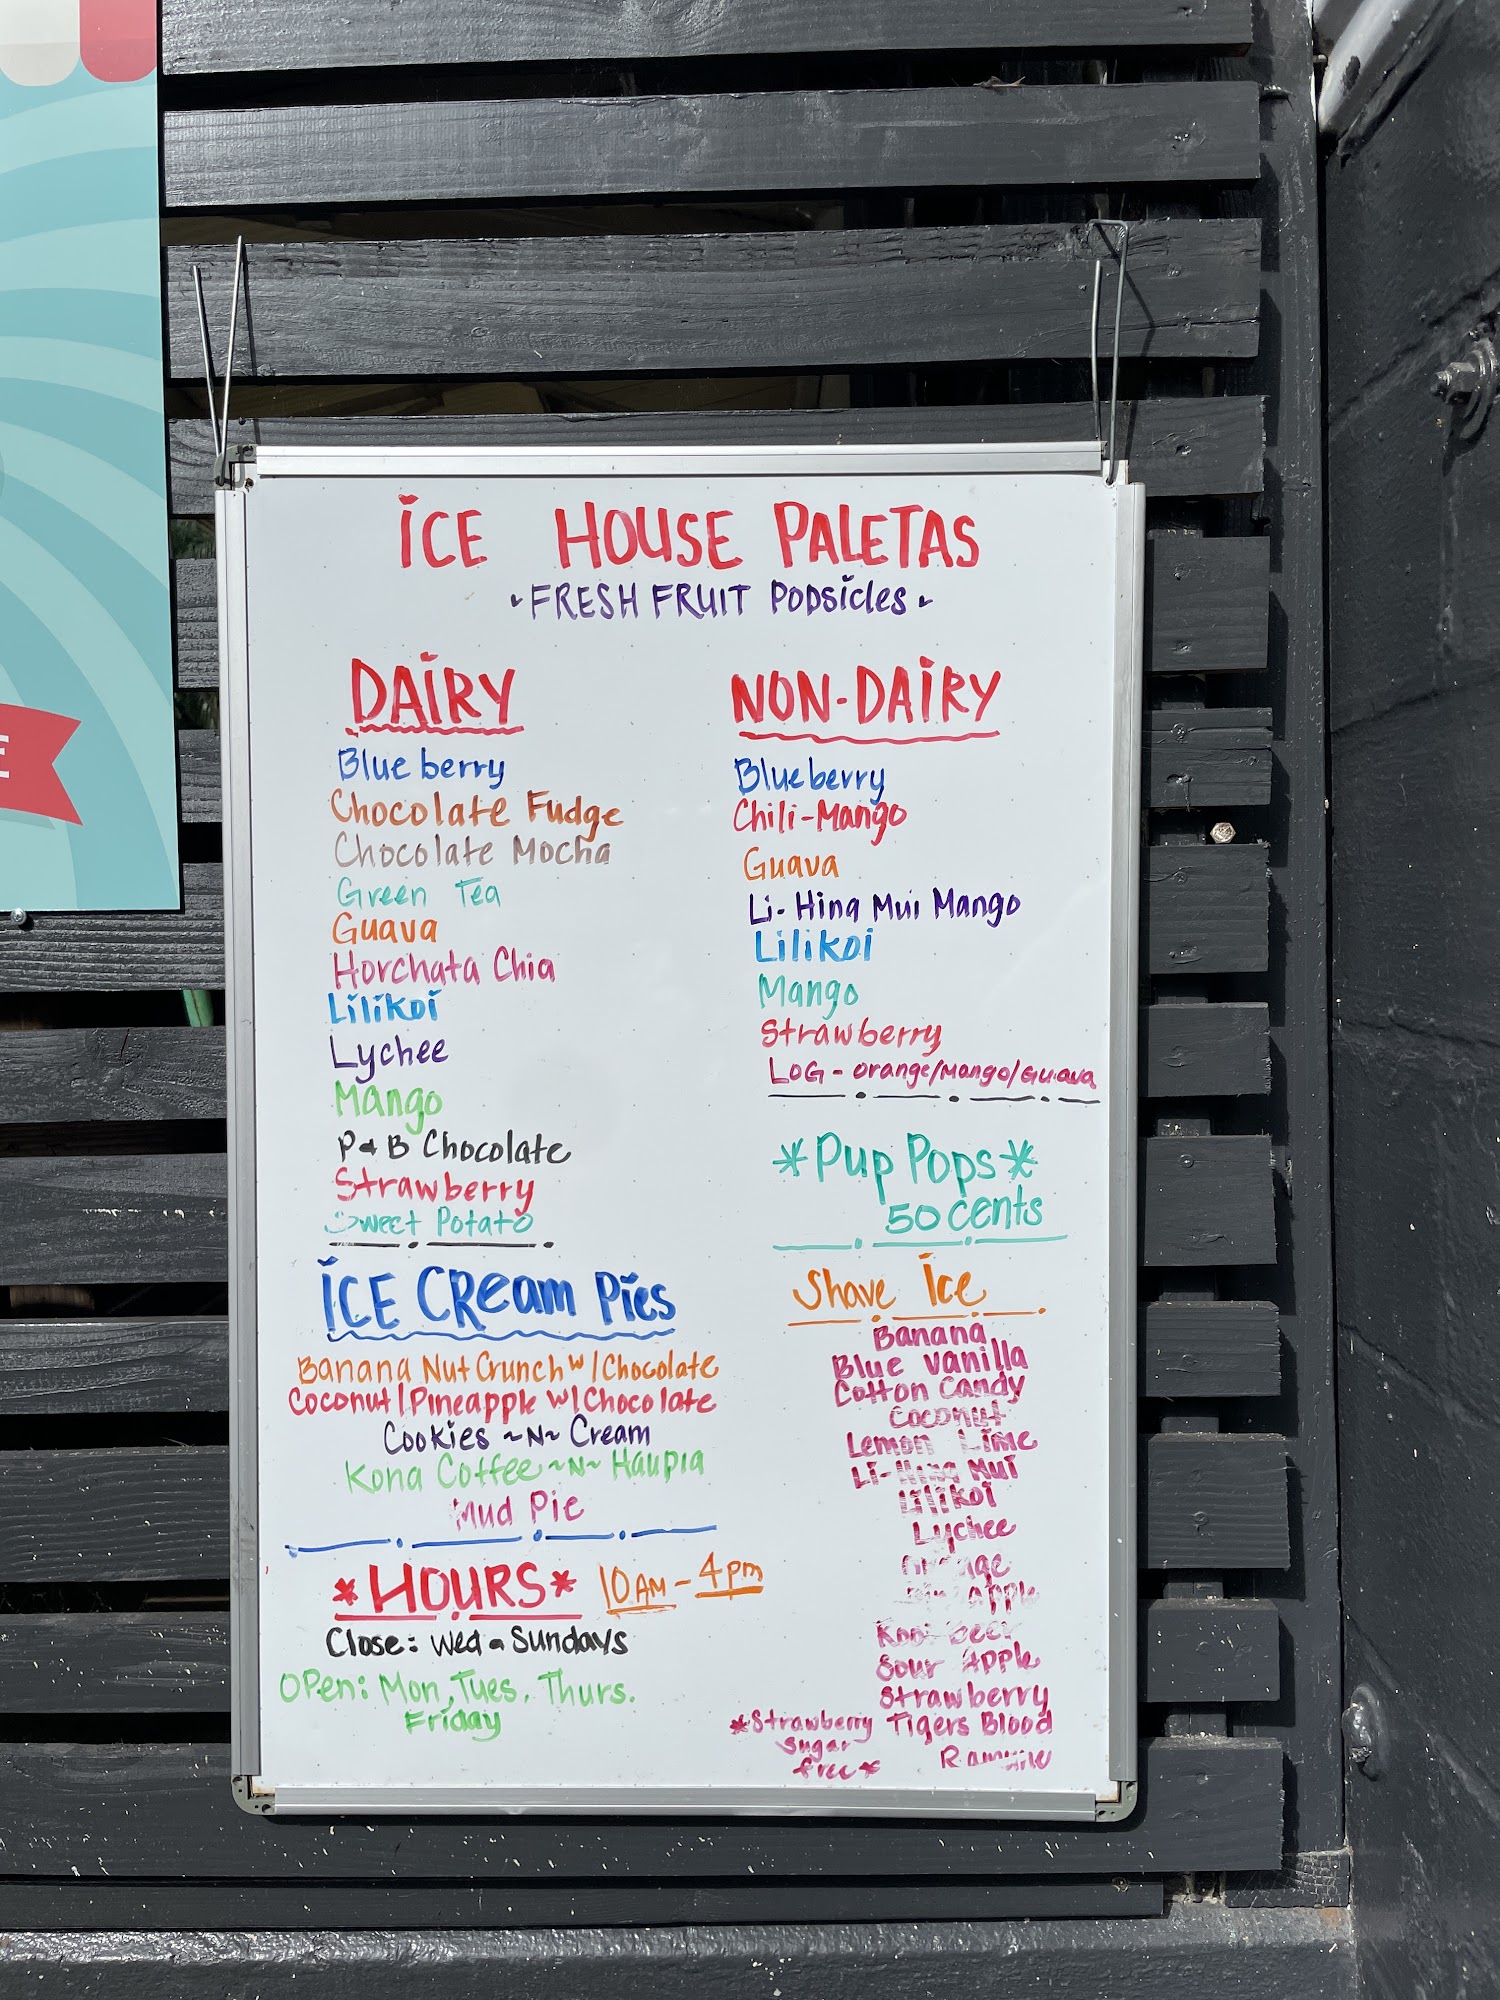 ICE HOUSE PALETAS
FRESH FRUIT Popsicles
DAIRY
Blueberry
Chocolate Fudge
Chocolate Mocha
Green Tea
Guava
Horchata Chia
Lilikoi
Lychee
Mango
P&B Chocolate
Strawberry
Sweet Potato
ICE CReam Pies
Banana Nut Crunch w/Chocolate
Coconut/Pineapple w/Chocolate
Cookies ~N~ Cream
Kona Coffee ~N~ Haupia
Mud Pie
*HOURS* 10AM - 4pm
Close: Wed - Sundays
OPen: Mon, Tues, Thurs.
Friday
NON-DAIRY
Blueberry
Chili-Mango
Guava
Li-Hing Mui Mango
Lilikoi
Mango
Strawberry
LOG - orange/Mango/Guava
*Pup Pops*
50 cents
Shave Ice
Banana
Blue vanilla
Cotton Candy
Coconut
Lemon Lime
Li-Hing Mui
Lilikoi
Lychee
Orange
Pineapple
Root beer
Sour Apple
Strawberry
Tigers Blood
*Strawberry
Sugar
free*
E